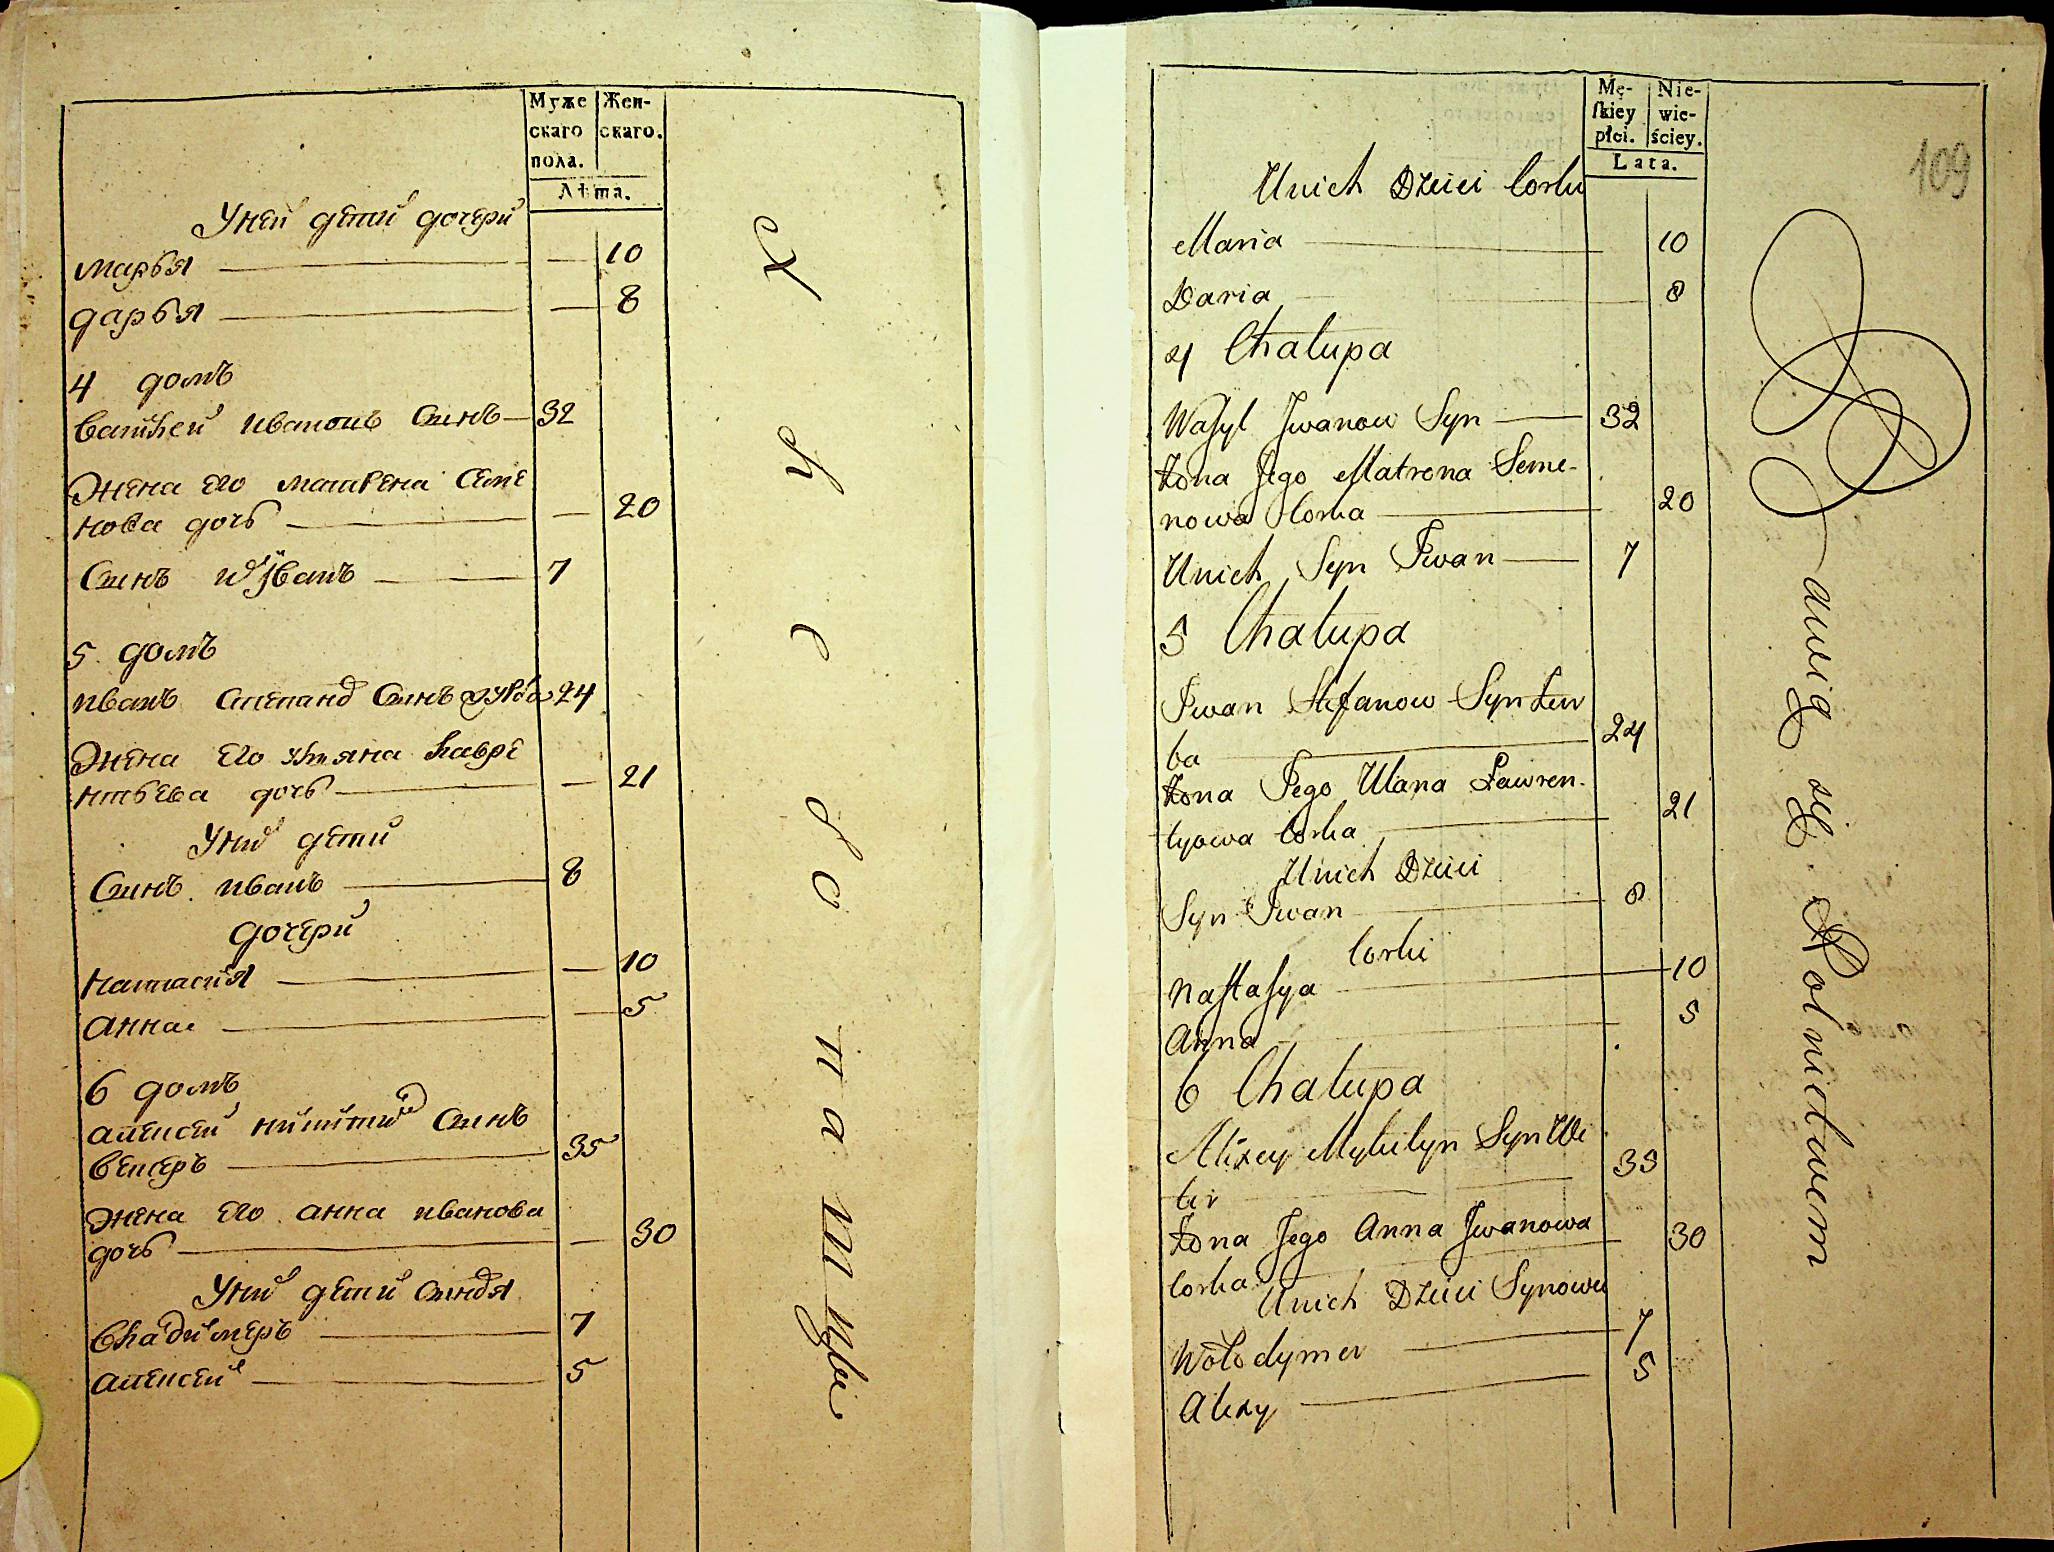 Муже
скаго
пола.
Жен-
скаго.
Лѣта.
Уней дети дочери
марья — — 10
дарья — — 8
4 домъ
васи́лей ивановъ синъ — 32
жена его матрена семе
нова дочь — — 20
Синъ иванъ — 7
5 домъ
иванъ степанов синъ 24
жена его уляна лавре
нтьева дочь — — 21
Уних дети
Синъ иванъ — 8
дочери
настасия — — 10
анна — — 5
6 домъ
алексей никитин синъ
векеръ — 35
жена его анна иванова
дочь — — 30
Уних дети синовя
владимеръ — 7
алексей — 5
хлебопашцы
109
Mę-
ſkiey
płci.
Nie-
wie-
ściey.
Lata.
Unich Dzieci Corki
Maria — 10
Daria — 8
4 Chalupa
Waſyl Jwanow Syn — 32
Żona Jego Matrona Seme-
nowa Corka — 20
Unich Syn Jwan — 7
5 Chalupa
Jwan Stefanow Syn Żur
ba — 24
Żona Jego Ulana Ławren-
tyowa Corka — 21
Unich Dzieci
Syn Jwan — 8
Corki
Naſtaſya — 10
Anna — 5
6 Chalupa
Alixey Mykityn Syn We
kir — 35
Żona Jego Anna Jwanowa — 30
Corka Unich Dzieci Synowie
Wołodymer — 7
Alexy — 5
awią się Rolnictwem